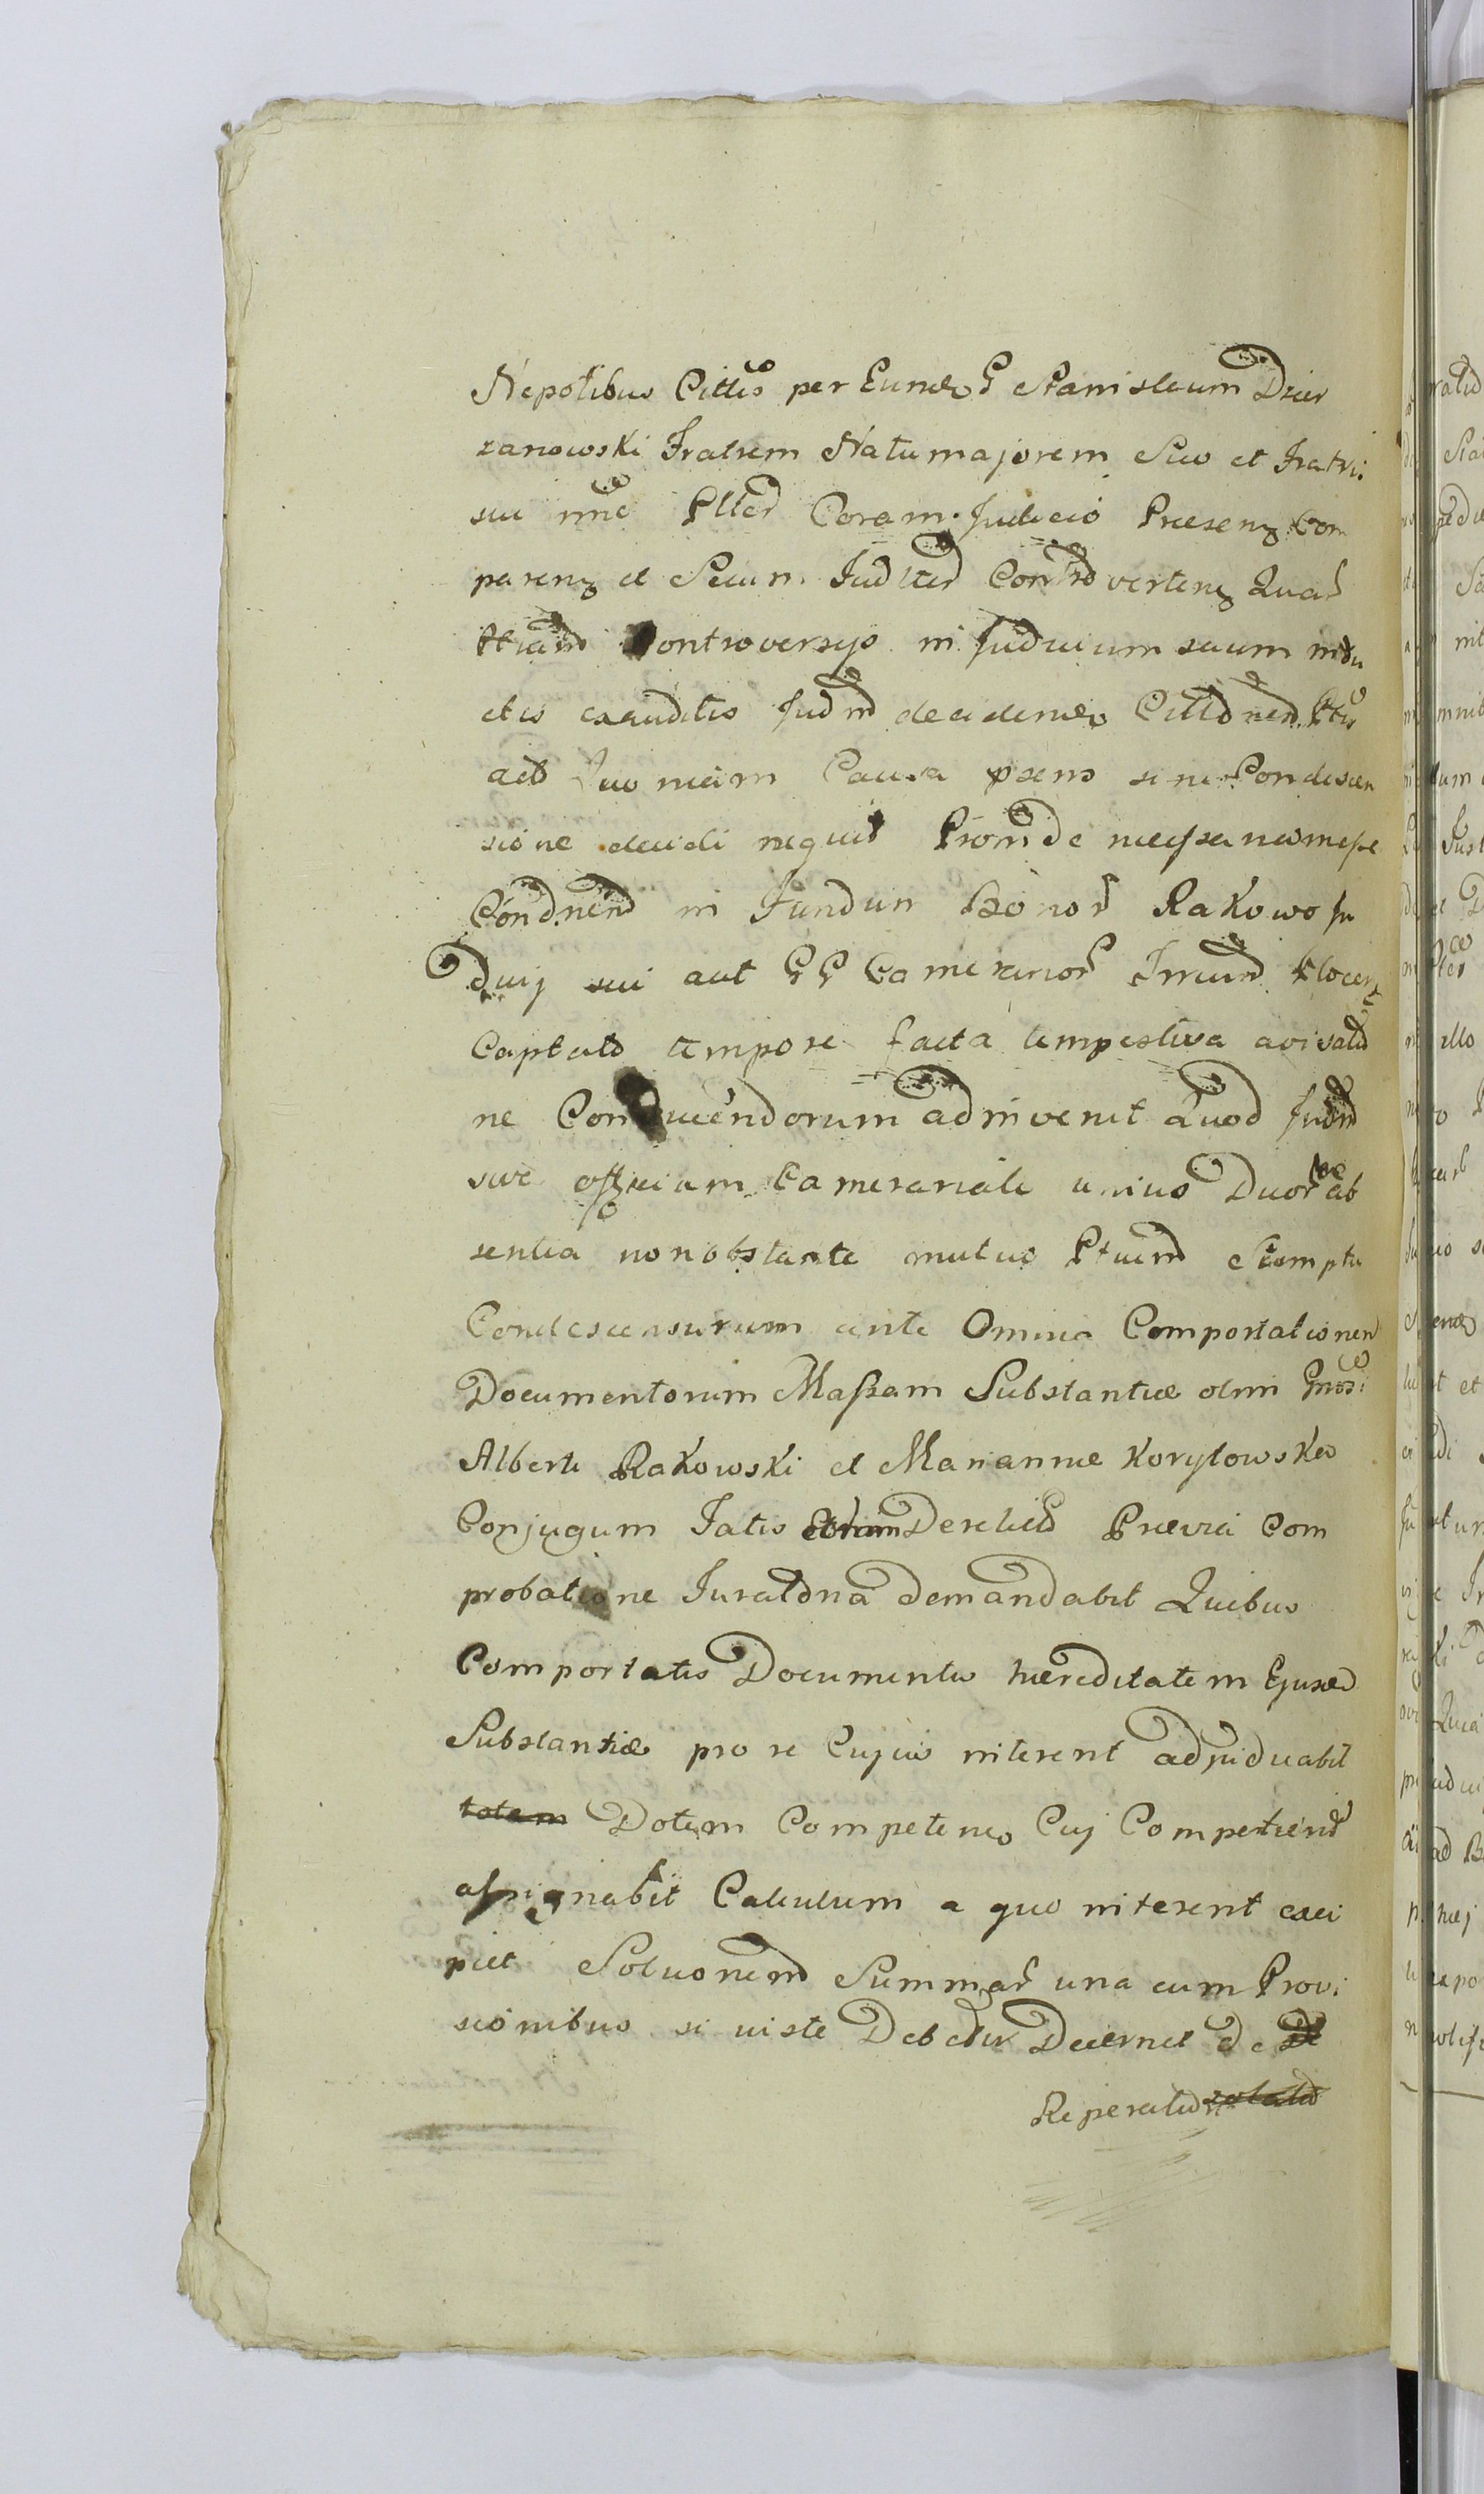 Nepotibus Cittis per Eund G Stanisleum Dzier
zanowski Fratrem Natu majorem Suo et Fratris
sui nne Ptter Coram Judicio Praesenz Com
parenz et Secum Juditer Controvertenz Quar
Ptiam Controversys in Judicium suum indu
ctis exauditis Judm decidendo Cittdnem Ptis
act Quoniam Causa psens sine Condescen
sione decidi nequit Proinde necessariam esse
Condnem in Fundum Bonor Rakowo Ju
dicij sui aut GG Camerarior Irrcund
Captato tempore facta tempestiva avisatd
ne Conducendorum adinvenit Quod Judm
sive officium Camerariale unius Duor ve ab
sentia non obstante mutuo Ptium Sumptu
Condescensurum ante Omnia Comportationem
Documentorum Massam Substantiae olim Gnosi
Alberti Rakowski et Mariannae Korytowska
Conjugum Fatis Derelict Praevia Com
probatione Juratdna demandabit Quibus
Comportatis Documentis haereditatem Ejusd
Substantiae pro re Cujus interent adjudicabit
totem Dotem Competenc Cuj Competierit
assignabit Calculum a quo interent exci
piet Soluonem Summar una cum Provi
sionibus si iuste Debetur Decernet de
Reperatid